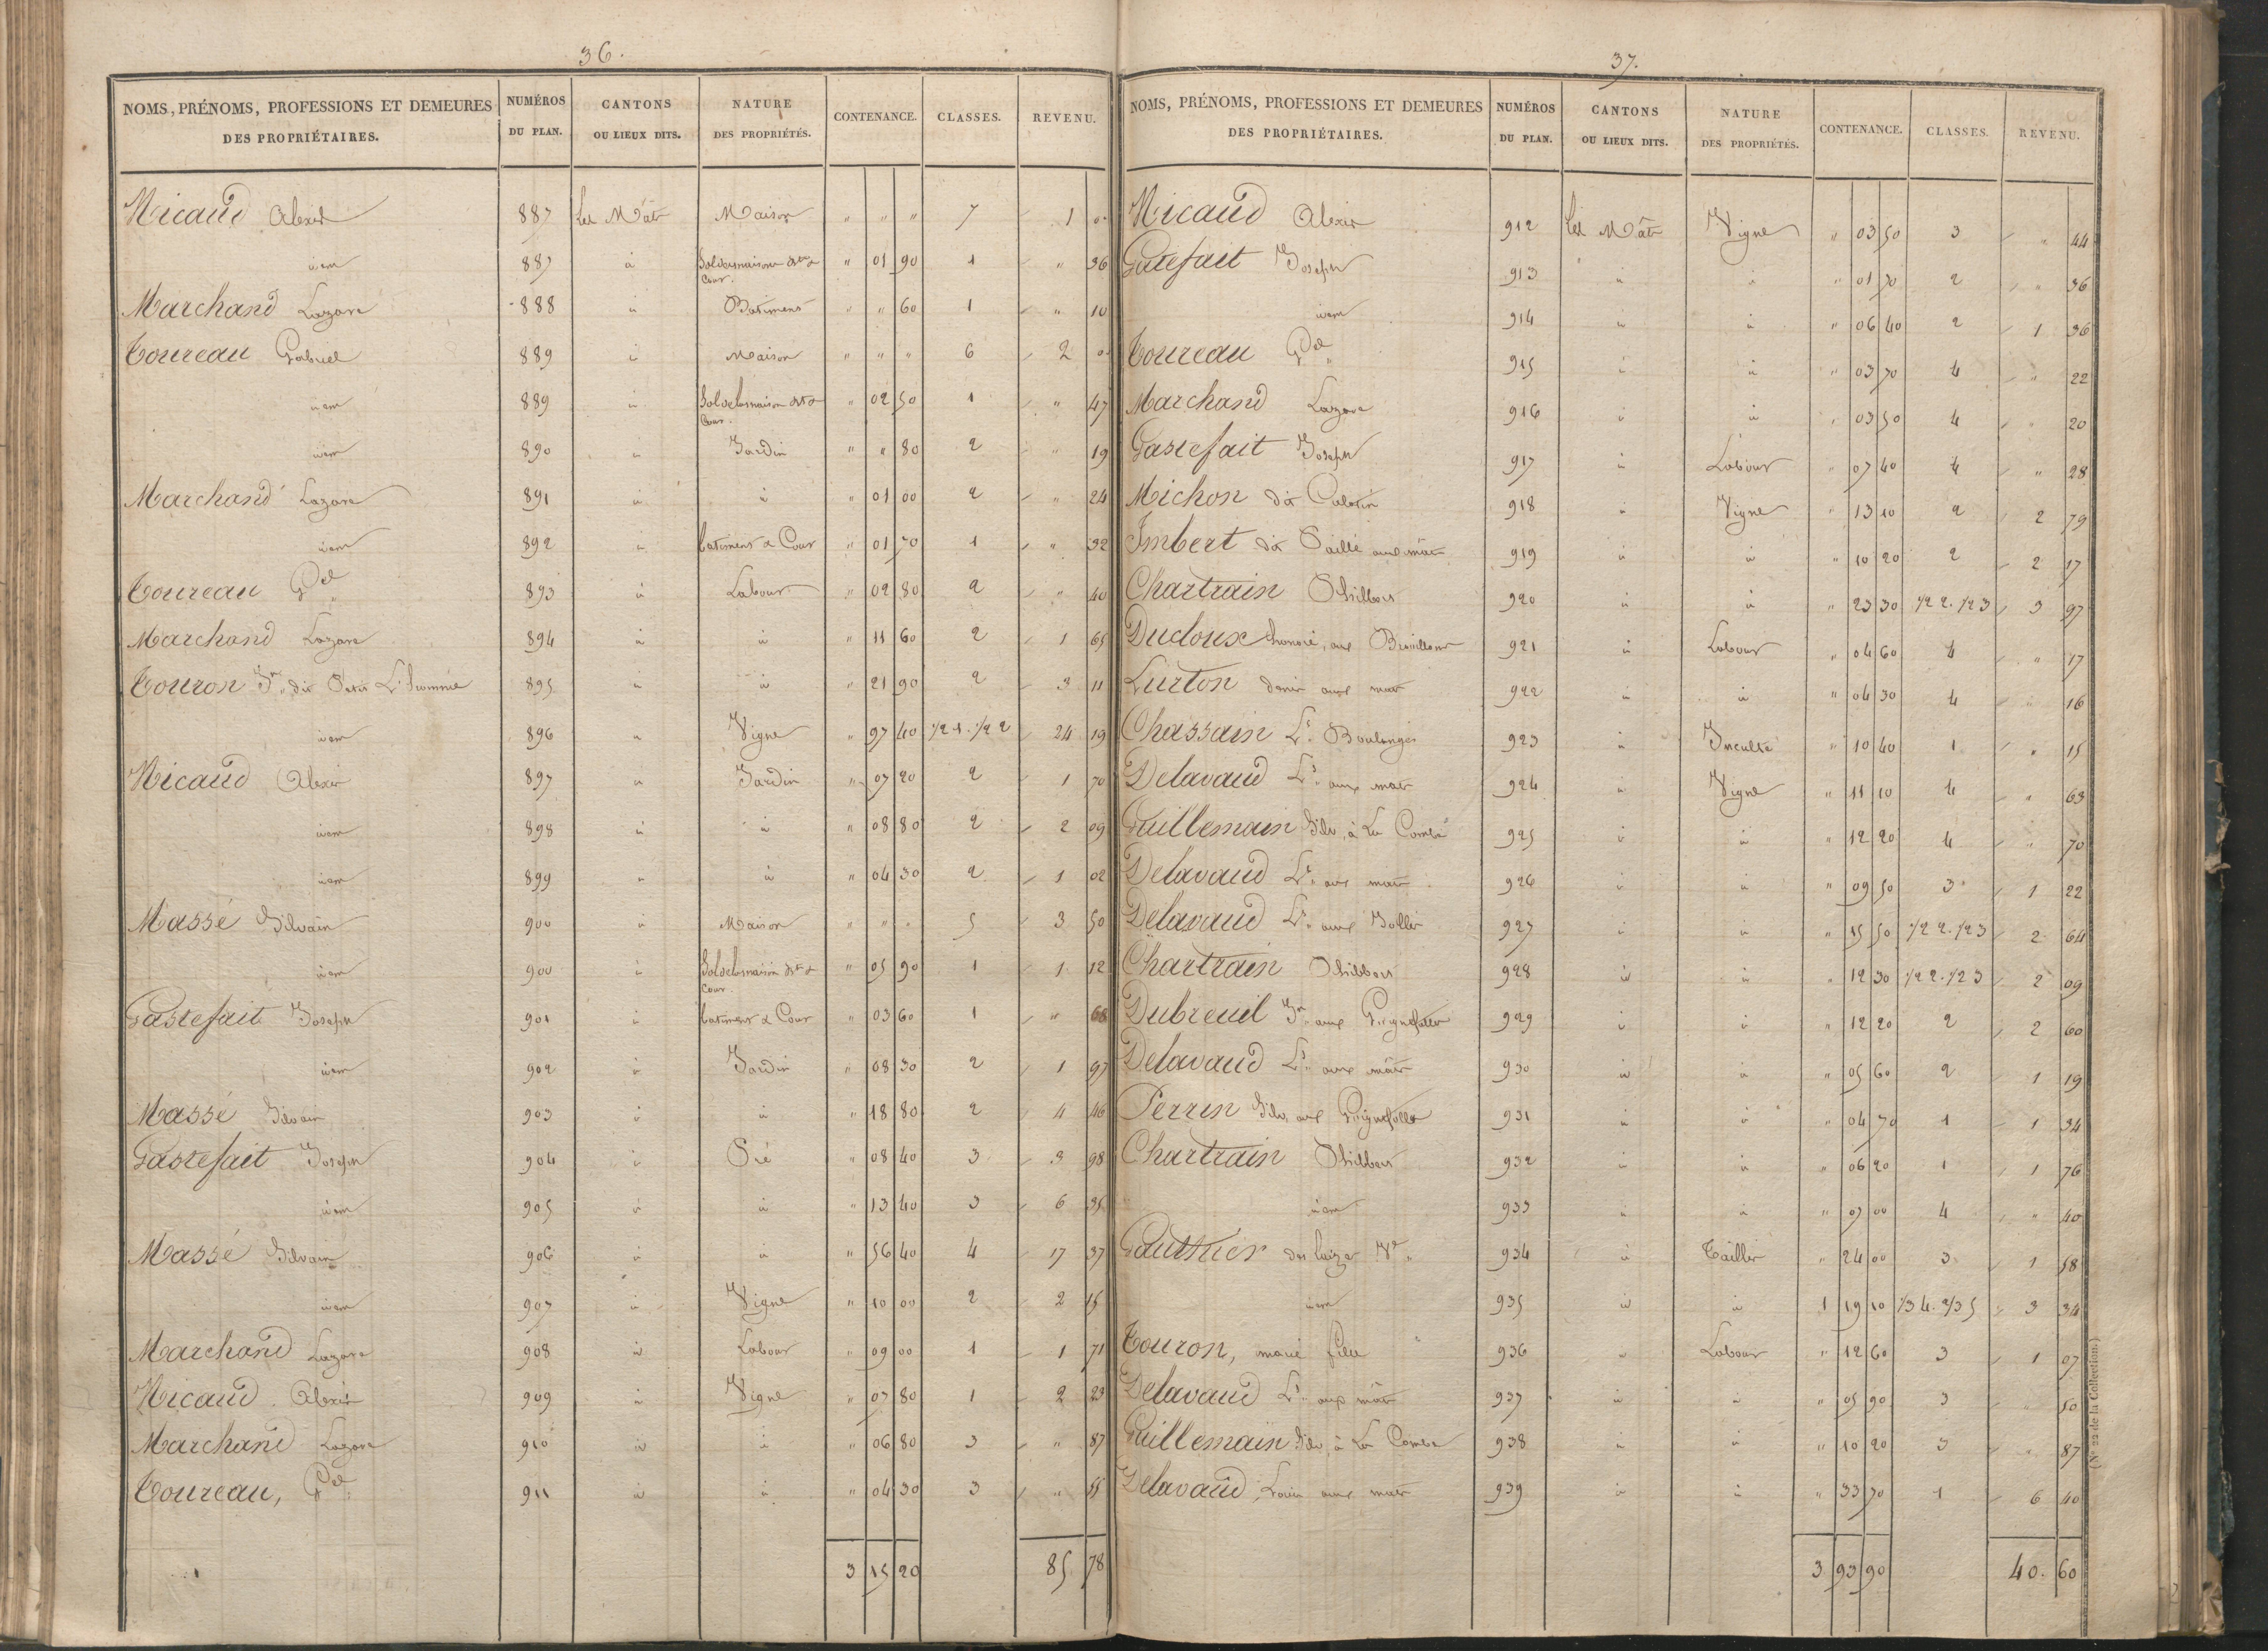 36.
NOMS, PRÉNOMS, PROFESSIONS ET DEMEURES DES PROPRIÉTAIRES. NUMÉROS DU PLAN. CANTONS OU LIEUX DITS. NATURE DES PROPRIÉTÉS. CONTENANCE. CLASSES. REVENU.
Nicaud Alexis 887 Les Mâts Maison " " " 7 1 0
idem 887 id Sol de la maison bt & Cour. " 01 90 1 " 36
Marchand Lazare 888 id Batiment " " 60 1 " 10
Toureau Gabriel 889 id Maison " " " 6 2 0
idem 889 id Sol de la maison bt & Cour. " 02 50 1 " 47
idem 890 id Jardin " " 80 2 " 19
Marchand Lazare 891 id id " 01 00 2 " 24
idem 892 id batiment & Cour " 01 70 1 " 32
Toureau Gel 893 id Labour " 02 80 2 " 40
Marchand Lazare 894 id id " 11 60 2 1 65
Touron Jn dit Petit L'homme 895 id id " 21 90 2 3 11
idem 896 id Vigne " 97 40 1/2 1. 1/2 2 24 19
Nicaud Alexis 897 id Jardin " 07 20 2 1 70
idem 898 id id " 08 80 2 2 09
idem 899 id id " 04 30 2 1 02
Massé Silvain 900 id Maison " " " 5 3 50
idem 900 id Sol de la maison bt & Cour. " 05 90 1 1 12
Gastefait Joseph 901 id batiment & Cour " 03 60 1 " 68
idem 902 id Jardin " 08 30 2 1 97
Massé Silvain 903 id id " 18 80 2 4 46
Gastefait Joseph 904 id Pré " 08 40 3 3 98
idem 905 id id " 13 40 3 6 35
Massé Silvain 906 id id " 56 40 4 17 37
idem 907 id Vigne " 10 00 2 2 15
Marchand Lazare 908 id Labour " 09 00 1 1 71
Nicaud Alexis 909 id Vigne " 07 80 1 2 23
Marchand Lazare 910 id id " 06 80 3 " 87
Toureau, Gel 911 id id " 04 30 3 " 55
3 15 20 85 78
37.
NOMS, PRÉNOMS, PROFESSIONS ET DEMEURES DES PROPRIÉTAIRES. NUMÉROS DU PLAN. CANTONS OU LIEUX DITS. NATURE DES PROPRIÉTÉS. CONTENANCE. CLASSES. REVENU.
Nicaud Alexis 912 Les Mâts Vigne " 03 50 3 " 44
Gatefait Joseph 913 id id " 01 70 2 " 36
idem 914 id id " 06 40 2 1 36
Toureau Gel 915 id id " 03 70 4 " 22
Marchand Lazare 916 id id " 03 50 4 " 20
Gastefait Joseph 917 id Labour " 07 40 4 " 28
Michon dit 918 id Vigne " 13 10 2 2 79
Imbert dit aux mâts 919 id id " 10 20 2 2 17
Chartrain Philbert 920 id id " 23 30 1/2 2. 1/2 3 3 97
Ducloux honoré, aux 921 id Labour " 04 60 4 " 17
Lurton denis aux mats 922 id id " 04 30 4 " 16
Chassain Ls Boulanger 923 id Inculte " 10 40 1 " 15
Delavaud Ls aux mats 924 id Vigne " 11 10 4 " 63
Guillemain Silv, à La Combe 925 id id " 12 20 4 " 70
Delavaud Ls aux mats 926 id id " 09 50 3 1 22
Delavaud Ls aux 927 id id " 15 50 1/2 2. 1/2 3 2 64
Chartrain Philbert 928 id id " 12 30 1/2 2. 1/2 3 2 09
Dubreuil Jn aux 929 id id " 12 20 2 2 60
Delavaud Ls aux mâts 930 id id " 05 60 2 1 19
Perrin Silv, aux 931 id id " 04 70 1 1 34
Chartrain Philbert 932 id id " 06 20 1 1 76
idem 933 id id " 07 00 4 " 40
Gauthier Ve 934 id Taillis " 24 00 3 1 58
idem 935 id id 1 19 10 1/3 4. 2/3 5 3 34
Touron, marie fille 936 id Labour " 12 60 3 1 07
Delavaud Ls aux mâts 937 id id " 05 90 3 " 50
Guillemain Silv, à La Combe 938 id id " 10 20 3 " 87
Delavaud, Louis aux mats 939 id id " 33 70 1 6 40
3 93 90 40. 60
(N° 22 de la Collection.)